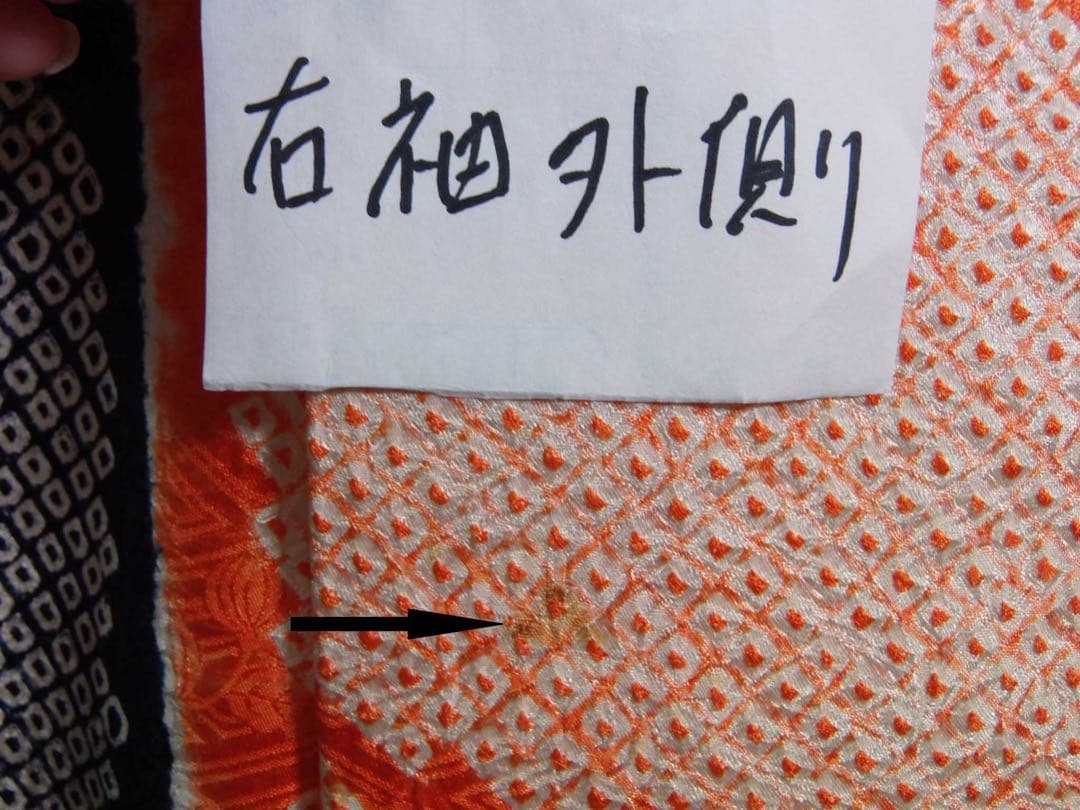 右袖外側り